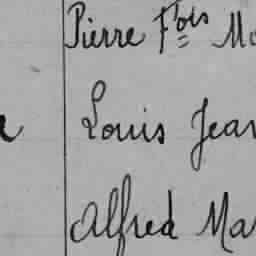 Pierre Fois Ma
Louis Jean
Alfred Ma